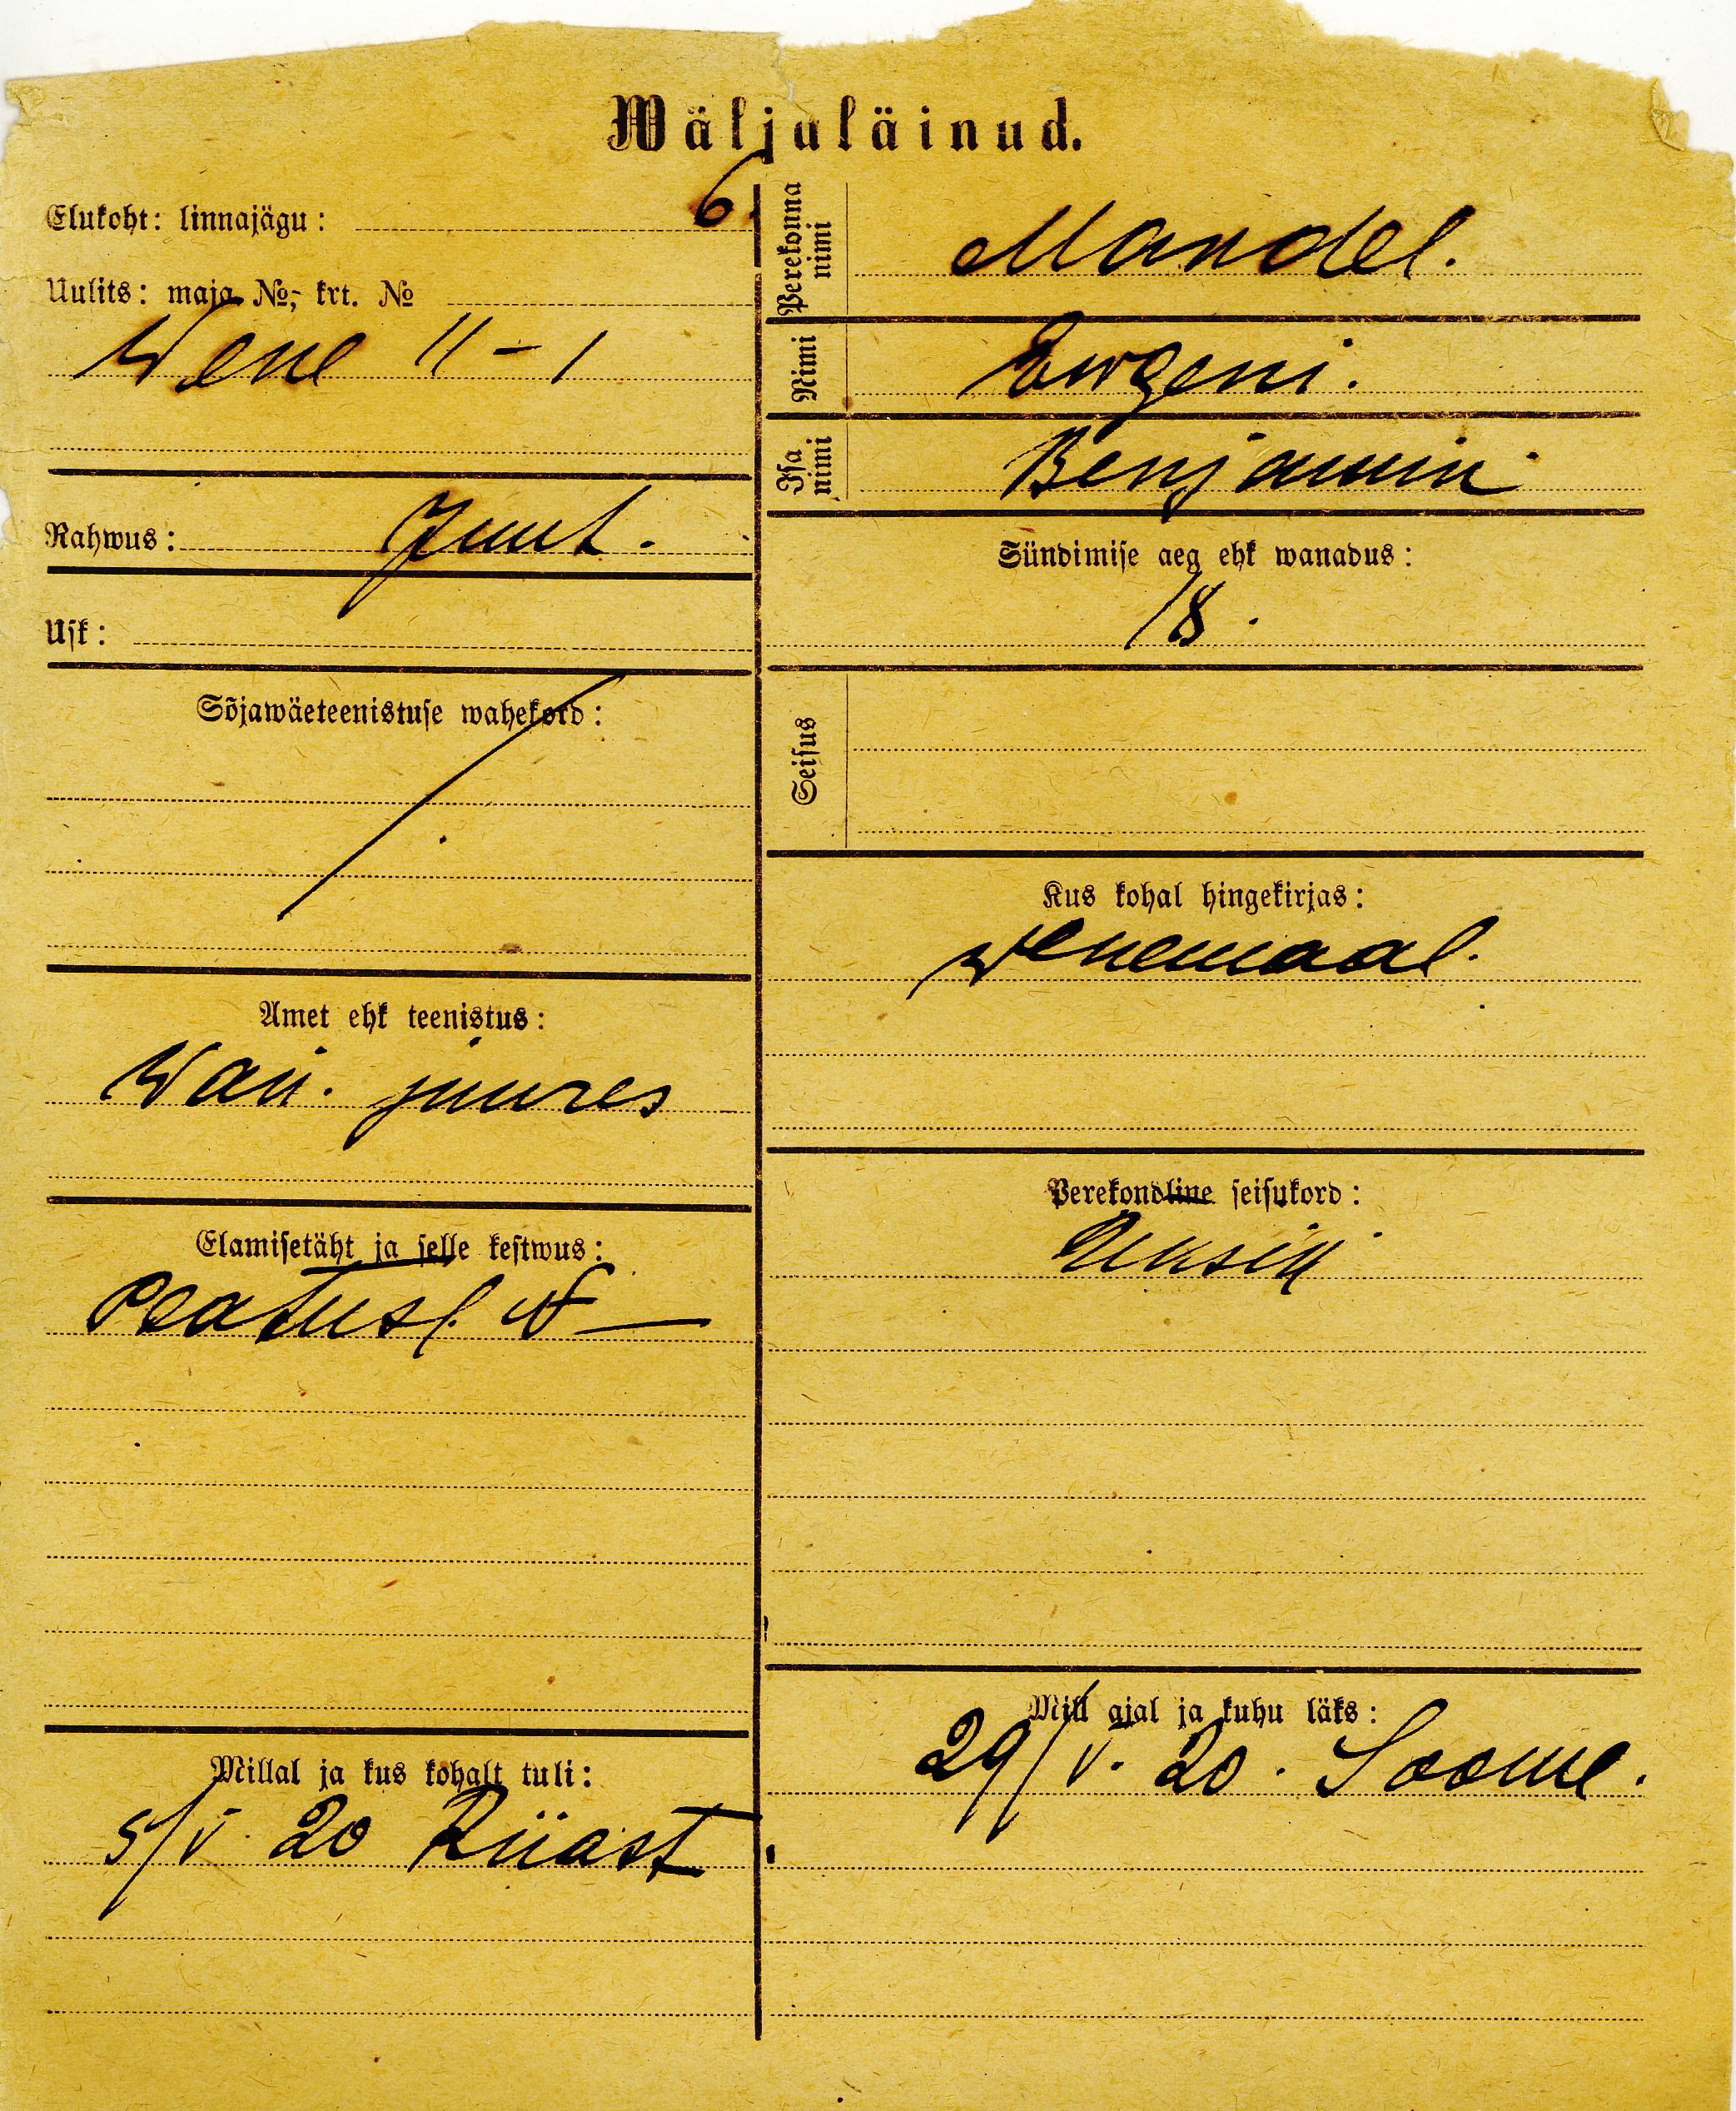 Wäljaläinud.
Elukoht: linnajägu: 6.
Uulits: maja №, krt. №
Wene 11 – 1
Rahwus: Juut.
Usk:
Sõjawäeteenistuse wahekord:
Amet ehk teenistus:
Wan. juures
Elamisetäht ja selle kestwus:
Peatusl. №
Millal ja kus kohalt tuli:
5/V. 20 Riiast
Perekonna nimi
Mandel.
Nimi
Ewgeni.
Isa nimi
Benjamin
Sündimise aeg ehk wanadus:
18.
Seisus
Kus kohal hingekirjas:
Wenemaal.
Perekondline seisukord:
Üksik
Mill ajal ja kuhu läks:
29/V. 20. Soome.